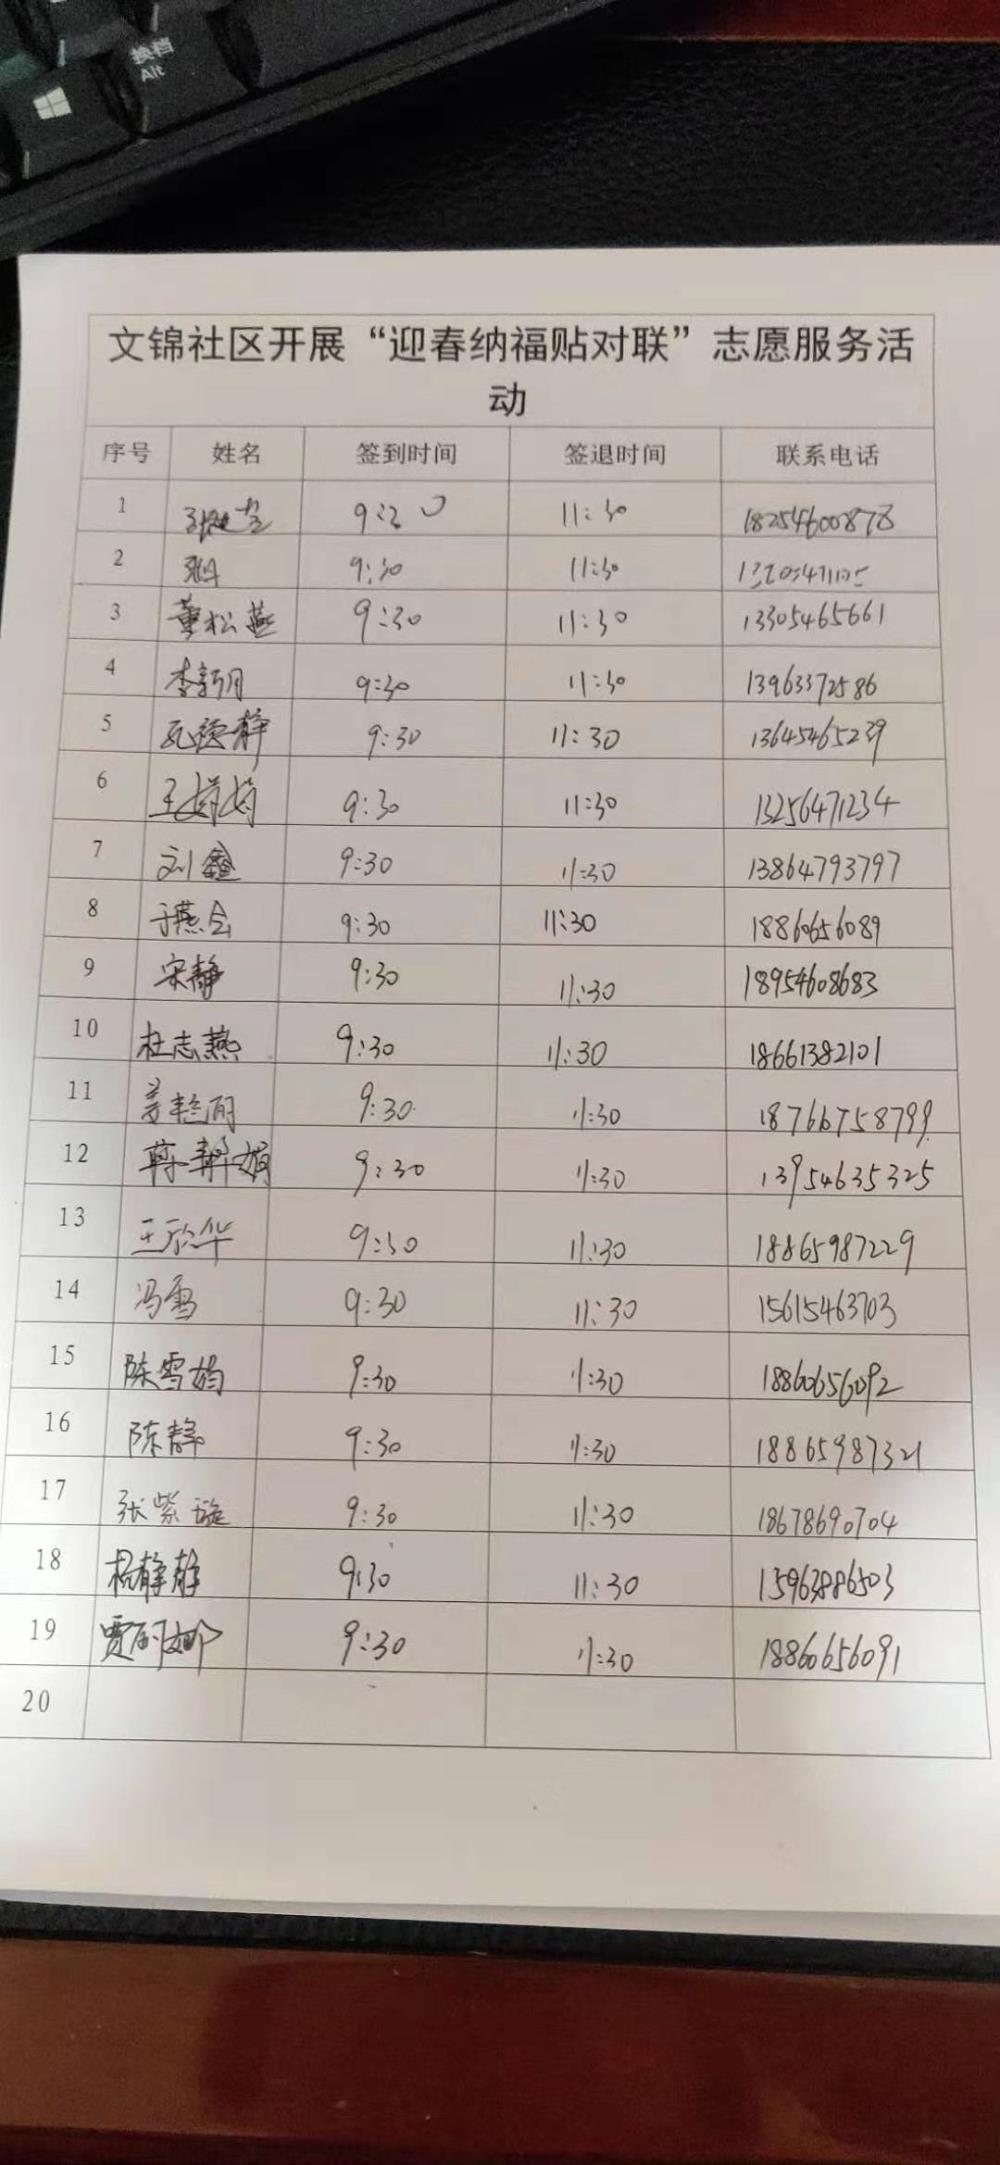 换档
Alt
文锦社区开展“迎春纳福贴对联”志愿服务活
动
序号 姓名 签到时间 签退时间 联系电话
1 9:30 11:30 18254600878
2 9:30 11:30
3 董松燕 9:30 11:30 13305465661
4 李新月 9:30 11:30 13963372586
5 9:30 11:30 13645465239
6 王婷婷 9:30 11:30 13256471234
7 刘鑫 9:30 11:30 13864793797
8 于燕会 9:30 11:30 18860656089
9 宋静 9:30 11:30 18954608683
10 杜志燕 9:30 11:30 18661382101
11 姜艳丽 9:30 11:30 18766758799
12 9:30 11:30 13954635325
13 王欣华 9:30 11:30 18865987229
14 冯雪 9:30 11:30 15615463703
15 陈雪娟 9:30 11:30 18860656092
16 陈静 9:30 11:30 18865987321
17 张紫璇 9:30 11:30 18678690704
18 杨静静 9:30 11:30 15963886503
19 贾丽娜 9:30 11:30 18860656091
20